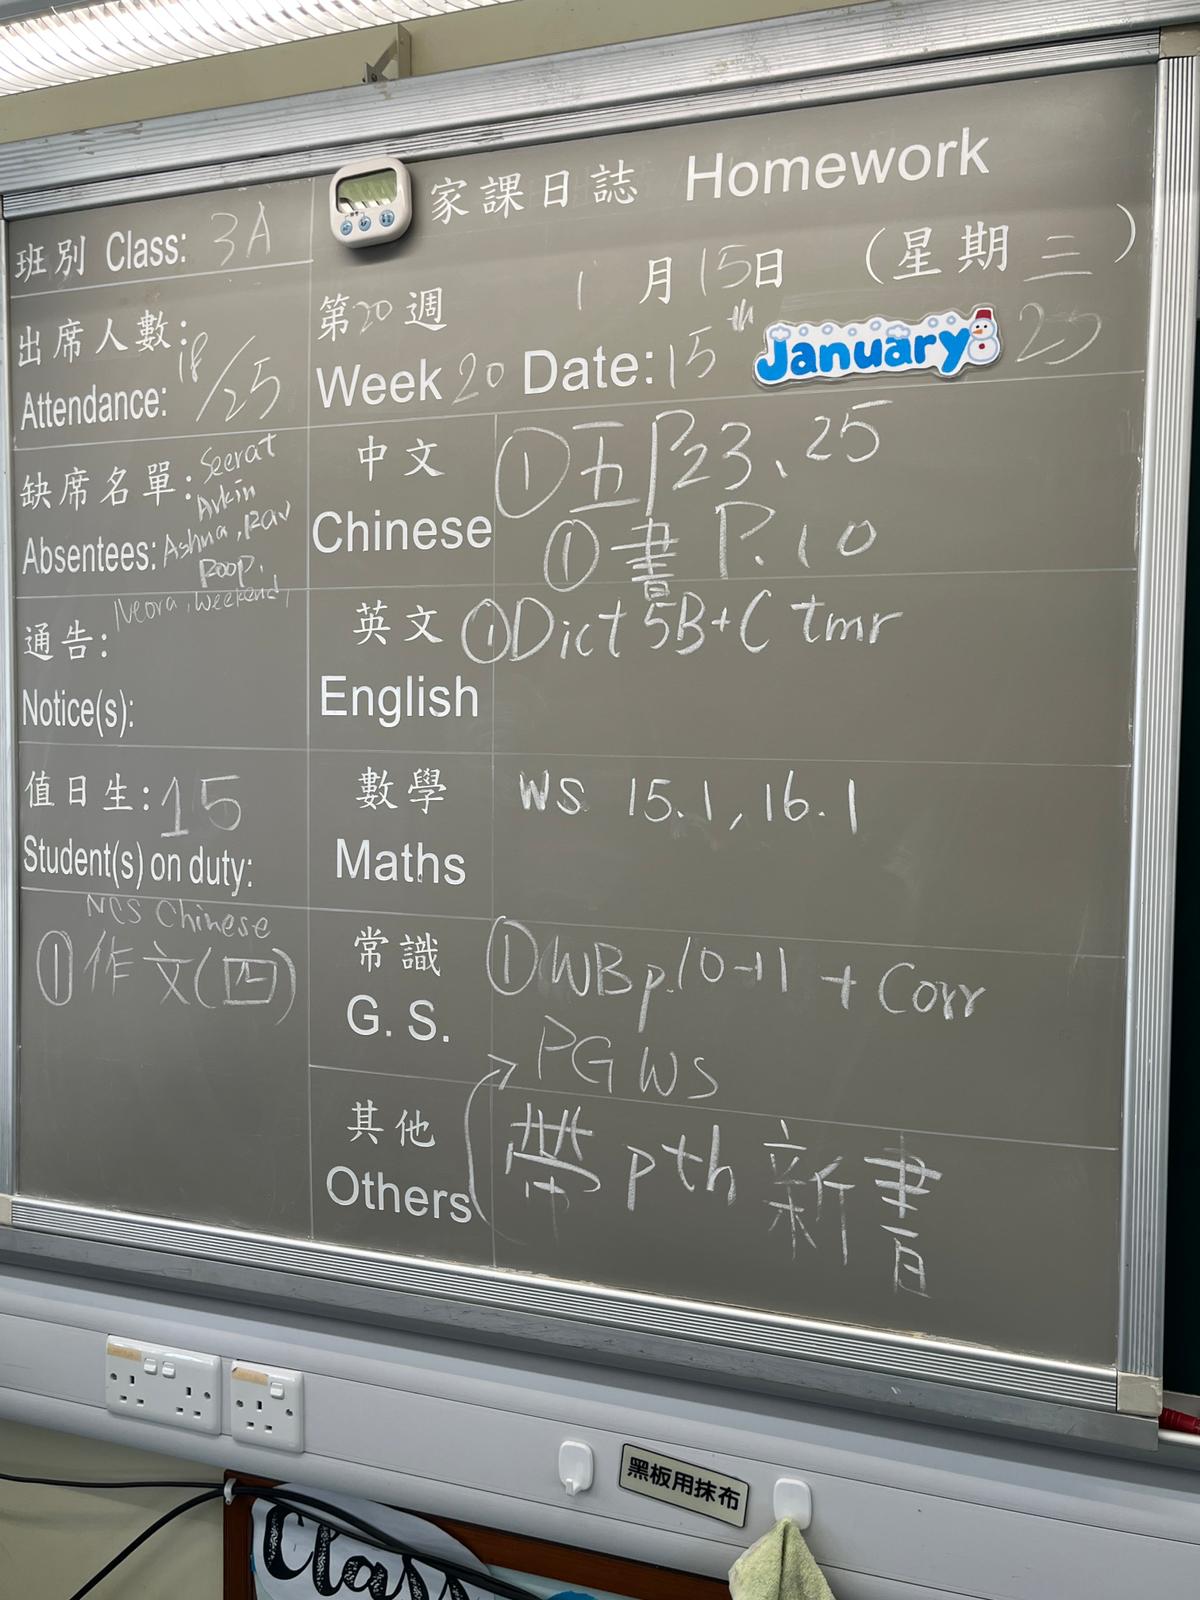 家課日誌 Homework
班別 Class: 3A
1 月 15 日 (星期三)
出席人數:
Attendance: 18/25
第20週
Week 20 Date: 15th January 25
缺席名單: Seerat
Arkin
Absentees: Ashna, Rav
Roop,
Neora, Weekend,
中文 ①五P23、25
Chinese ①書 P.10
通告:
Notice(s):
英文 ①Dict 5B+C tmr
English
值日生: 15
Student(s) on duty:
數學 WS 15.1, 16.1
Maths
NCS Chinese
①作文(四)
常識 ①WB p.10-11 + Corr
G. S.
PG WS
其他 帶 pth 新書
Others
黑板用抹布
Class